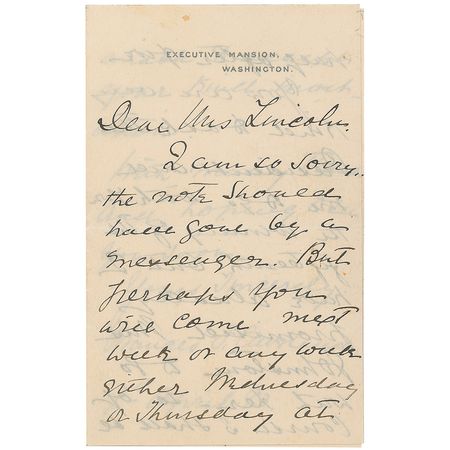 EXECUTIVE MANSION,
WASHINGTON.
Dear Mrs Lincoln.
I am so sorry,
the note should
have gone by a
messenger. But
perhaps you
will come next
week or any week
either Wednesday
or Thursday at